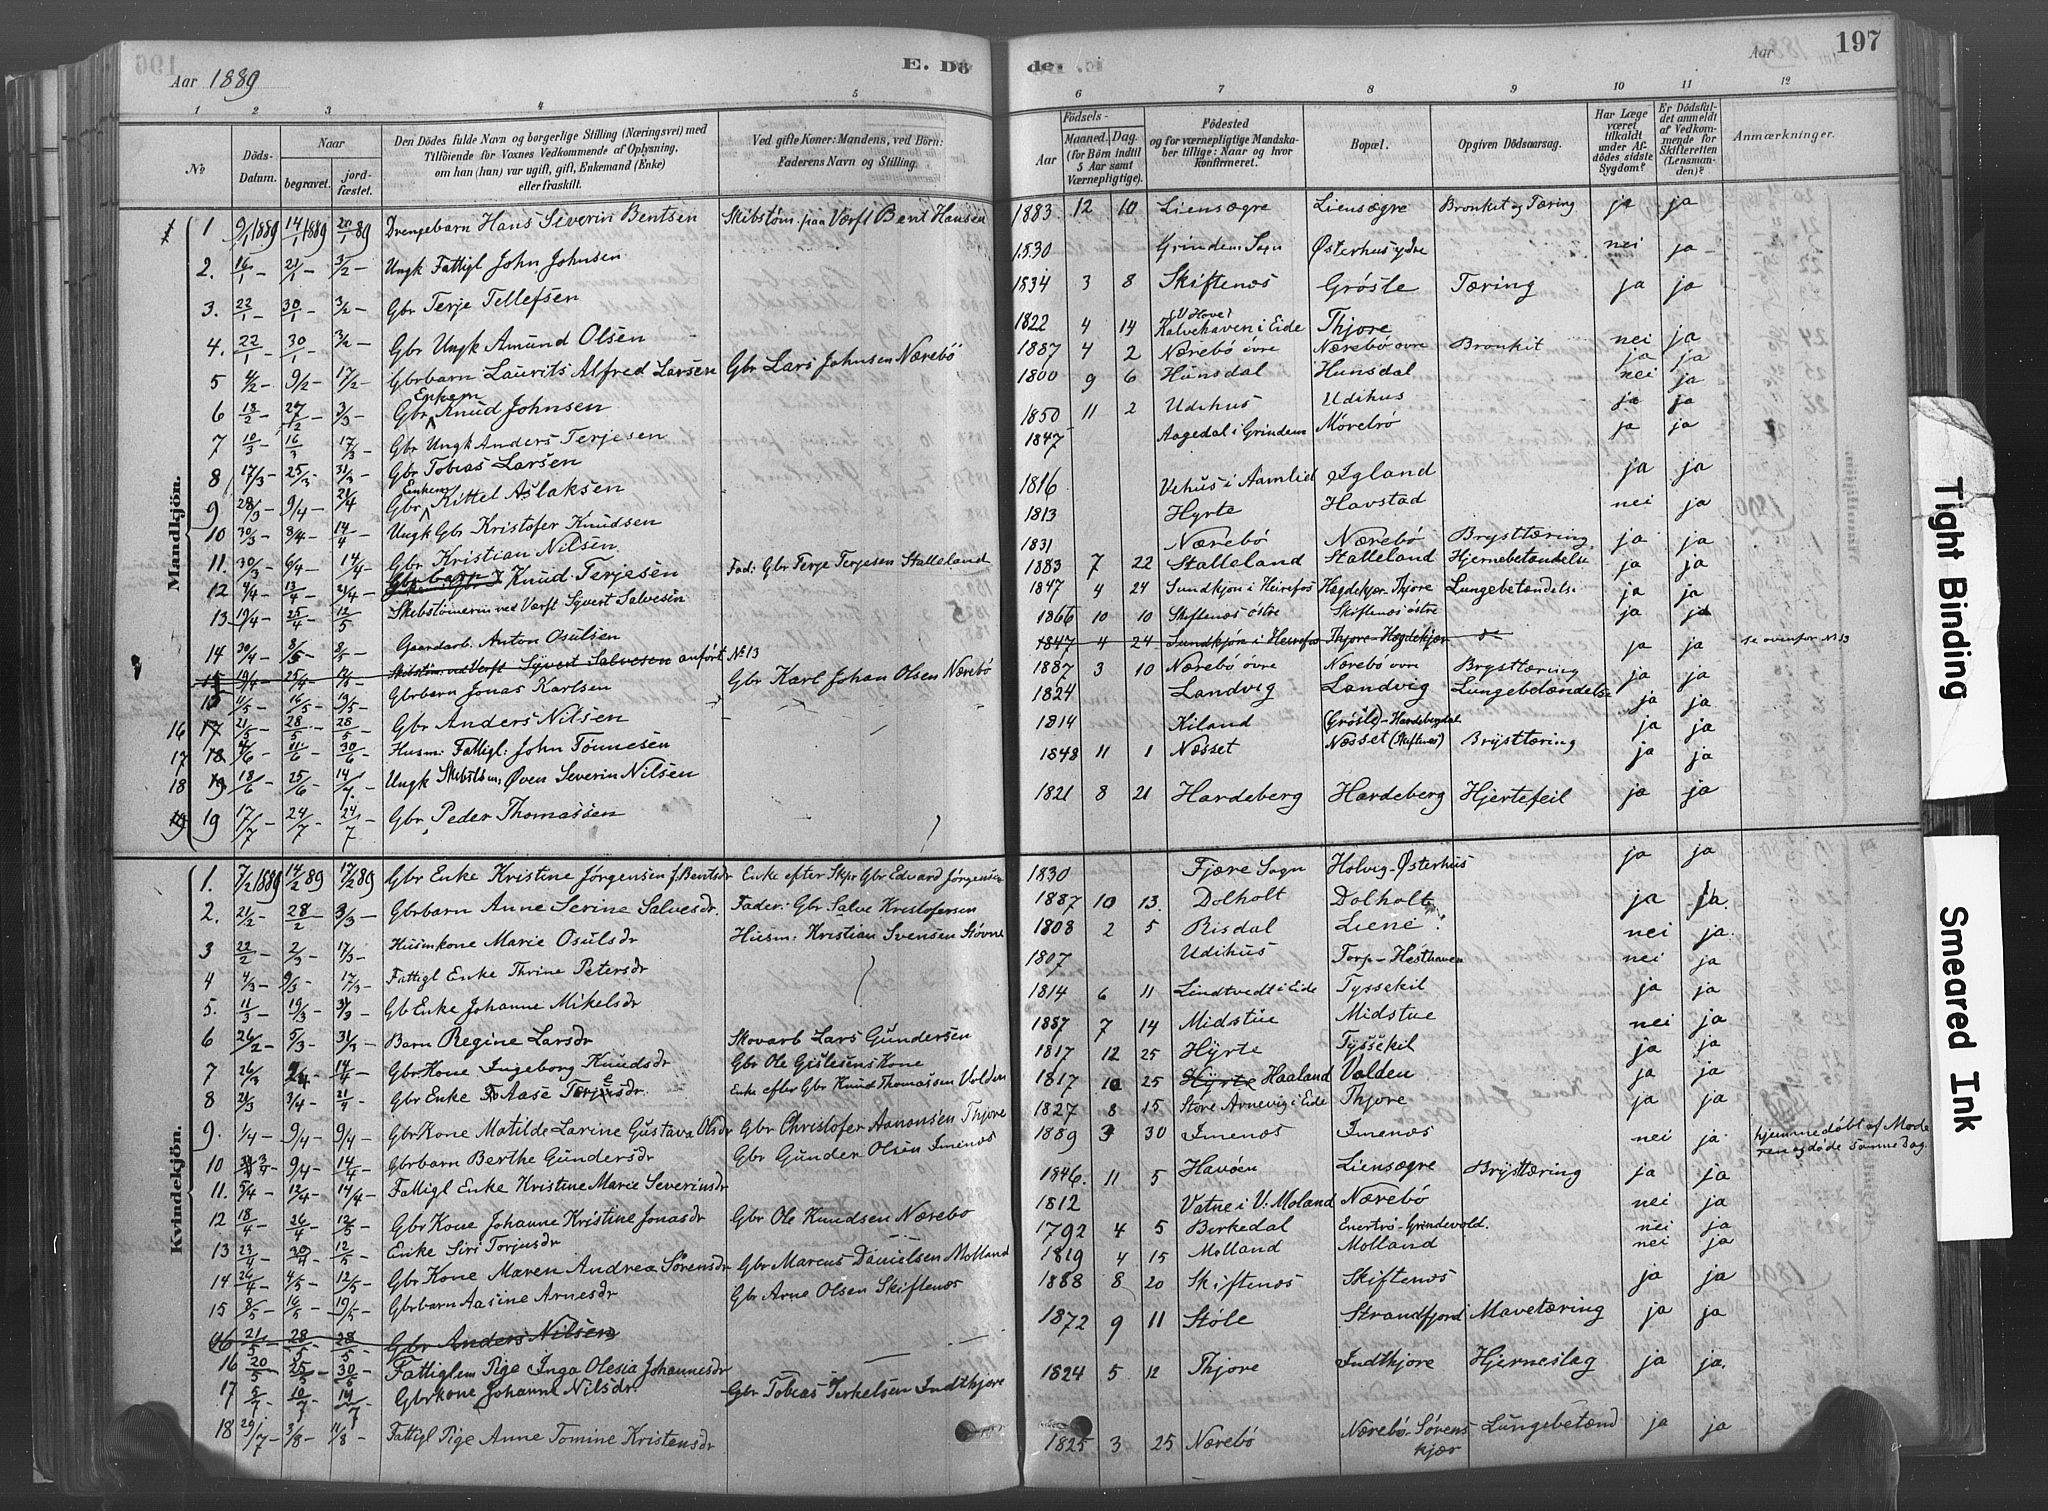 196
Aar 1889
E. Dö
de.
Aar
197
1 2 3 4 5 6 7 8 9 10 11 12
No
Döds-Datum.
Naar
begravet.
jord-fæstet.
Den Dödes fulde Navn og borgerlige Stilling (Næringsvei) med
Tilföiende for Voxnes Vedkommende af Oplysning,
om han (hun) var ugift, gift, Enkemand (Enke)
eller fraskilt.
Ved gifte Koner: Mandens, ved Börn:
Faderens Navn og Stilling.
Födsels-
Aar
Maaned. Dag.
(for Börn indtil
5 Aar samt
Værnepligtige).
Födested
og for værnepligtige Mandska-
ber tillige: Naar og hvor
konfirmeret.
Bopæl.
Opgiven Dödsaarsag.
Har Læge
været
tilkaldt
under Af-
dödes sidste
Sygdom?
Er Dödsfal-
det anmeldt
af Vedkom-
mende for
Skifteretten
(Lensman-
den)?
Anmærkninger.
Mandkjön.
1 9/1 1889 14/1 1889 20/1 89 Drengebarn Hans Severin Bentsen Skibstøm. paa Værft Bent Hansen 1883 12 10 Liensøgre Liensøgre Bronkit og Tæring ja ja
2. 16/1 - 21/1 - 3/2 - Ungk Fattigl John Johnsen 1830 Grindem Sogn Østerhus ydre nei ja
3. 22/1 - 30/1 - 3/2 - Gbr Terje Tellefsen 1834 3 8 Skiftenæs Grösle Tæring ja ja
4. 22/1 - 30/1 - 3/2 - Gbr Ungk Amund Olsen 1822 4 14 Kalvehaven i Eide Thjore nei ja
5 4/2 - 9/2 - 17/2 - Gbrbarn Laurits Alfred Larsen Gbr Lars Johnsen Nærebö 1887 4 2 Nærebö övre Nærebö ovre Bronkit ja ja
6 13/2 - 27/2 - 3/3 - Gbr Enkem Knud Johnsen 1800 9 6 Hunsdal Hunsdal nei ja
7 10/3 - 16/3 - 17/3 - Gbr Ungk Anders Terjesen 1850 11 2 Udihus Udihus ja ja
8 17/3 - 25/3 - 31/3 - Gbr Tobias Larsen 1847 Aagedal i Grindem Mörebrö ja ja
9 28/3 - 9/4 - 21/4 Gbr Enkem Kittel Aslaksen 1816 Vehus i Aamlid Igland ja ja
10 30/3 - 8/4 - 14/4 - Ungk Gbr Kristofer Knudsen 1813 Hyrte Havstad nei ja
11. 30/3 - 6/4 - 14/4 - Gbr Kristian Nilsen 1831 Nærebö Nærebö Brysttæring ja ja
12 4/4 - 13/4 - 21/4 - Gbrbarn Knud Terjesen Fad: Gbr Terje Terjesen Stalleland 1883 7 22 Stalleland Stalleland Hjernebetændelse ja ja
13 19/4 - 25/4 - 12/5 Skibstömerm ved Værft Syvert Salvesen 1847 4 24 Sundkjön i Heirefos Hægdekjær Thjore Lungebetændelse ja ja
14 30/4 - 8/5 - 8/5 - Gaardarb. Anton Osulsen 1866 10 10 Skiftenæs östre Skiftenæs östre ja ja
15 19/4 - 25/4 - Skibstöm. ved Værft Syvert Salvesen anfört No 13 1847 4 24 Sundkjön i Heirefos Thjore Hægdekjær se ovenfor No 13
15 4/5 - 16/5 - 19/5 - Gbrbarn Jonas Karlsen Gbr Karl Johan Olsen Nærebö 1887 3 10 Nærebö övre Nærebö ovre Brysttæring ja ja
16 17 21/5 - 28/5 - 28/5 - Gbr Anders Nilsen 1824 Landvig Landvig Lungebetændelse ja ja
17 18 4/6 - 11/6 - 30/6 - Husm: Fattigl: John Tönnesen 1814 Kiland (Grösle) - Hardebergdal ja ja
18 19 18/6 - 25/6 - 14/7 - Ungk Skibstöm: Øven Severin Nilsen 1848 11 1 Næsset Næsset (Skiftenæs) Brysttæring ja ja
19 19 17/7 - 24/7 - 24/7 - Gbr Peder Thomassen 1821 8 21 Hardeberg Hardeberg Hjertefeil ja ja
Kvindekjön.
1. 7/2 1889 14/2 89 17/2 89 Gbr Enke Kristine Jörgensen f. Bentsdr Enke efter Skpr Gbr Edvard Jörgensen 1830 Fjære Sogn Holvig-Østerhus ja ja
2. 21/2 - 28/2 - 3/3 - Gbrbarn Anne Serine Salvesdr. Fader: Gbr Salve Kristofersen 1887 10 13 Dolholt Dolholt ja ja.
3 22/2 - 2/3 - 17/3 - Husmkone Marie Osulsdr Husm: Kristian Svensen Stövne 1808 2 5 Risdal Liene nei ja.
4 4/3 - 9/3 - 17/3 - Fattigl Enke Thrine Petersdr 1807 Udihus Torp-Hesthaven nei ja
5. 11/3 - 19/3 - 31/3 Gb Enke Johanne Mikelsdr 1814 6 11 Lindtvedt i Eide Tyssekil ja ja
6 26/2 - 5/3 - 31/3 - Barn Regine Larsdr Skovarb Lars Gundersen 1887 7 14 Midstue Midstue nei ja
7 26/3 14/4 - Gbr Kone Ingeborg Knudsdr Gbr Ole Gislesens Kone 1817 12 25 Hyrte Tyssekil ja ja
8 21/3 3/4 - 21/4 - Gbr Enke Aase Terjesdr. Enke efter Gbr Knud Thomassen Valden 1817 10 25 Hyrte Haaland Valden ja ja
9. 1/4 - 9/4 - 9/4 - Gbr Kone Matilde Larine Gustava Olsdr Gbr Christofer Aanonsen Thjore 1827 8 15 Store Arnevig i Eide Thjore ja ja
10 3/4 - 9/4 - 14/4 - Gbrbarn Berthe Gundersdr Gbr Gunder Olsen Imenæs 1889 3 30 Imenæs Imenæs nei ja. hjemmedöbt af Mode
ren og döde samme Dag.
11. 5/4 - 12/4 - 14/4 - Fattigl Enke Kristine Marie Severinsdr 1846. 11 5 Havöen Liensøgre Brysttæring ja ja
12 18/4 - 26/4 - 12/5 - Gbr Kone Johanne Kristine Jonasdr Gbr Ole Knudsen Nærebo 1812 Vatne i V. Moland Nærebö nei ja
13 23/4 - 30/4 - 12/5 - Enke Siri Torjusdr 1792 4 5 Birkedal Enertrö-Grindevold. nei ja
14 26/4 - 4/5 - 12/5 - Gbr Kone Maren Andrea Sörensdr Gbr Marcus Danielsen Molland 1819 4 15 Molland Molland nei ja
15 8/5 - 16/5 - 19/5 - Gbrbarn Aasine Arnesdr Gbr Arne Olsen Skiftenæs 1888 8 20 Skiftenæs Skiftenæs ja ja
16 21/5 - 28/5 - 28/5 - Gbr Anders Nilsen
16 20/5 - 25/5 - 30/5 - Fattiglem Pige Inga Olesia Johannesdr 1872 9 11 Stöle Strandfjord Mavetæring ja ja
17 5/7 - 10/7 - 19/7 Gbrkone Johanne Nilsdr. Gbr Tobias Terkelsen Indthjore 1824 5 12 Thjore Indthjore Hjerneslag ja ja.
18 29/7 - 3/8 - 11/8 Fattigl Pige Anne Tomine Kristensdr 1825 3 25 Nærebö Nærebö-Sörens
kjær Lungebetænd ja ja
Tight Binding
Smeared Ink